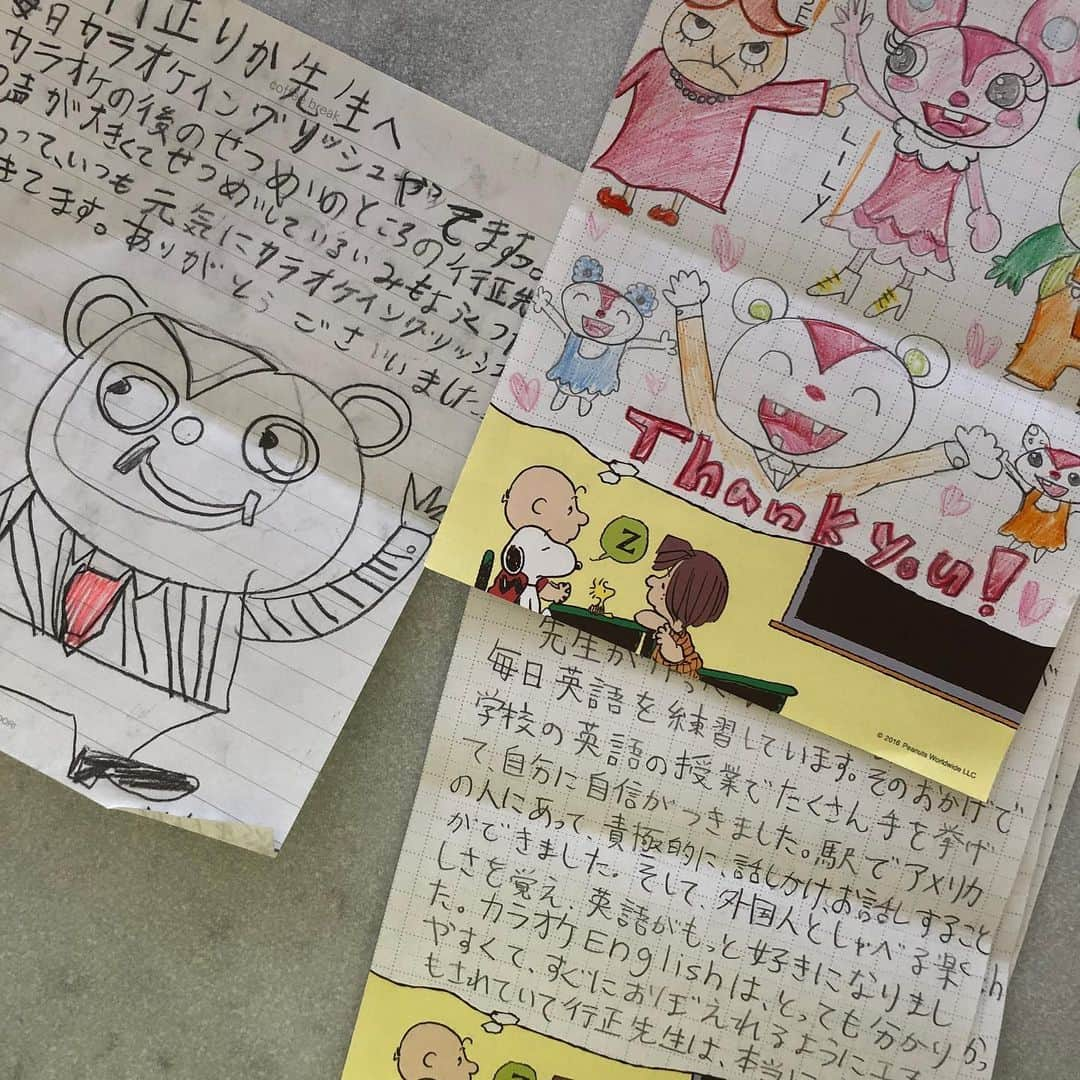 行正りか先生へ
毎日カラオケイングリッシュやってます。
カラオケの後のせつめいのところの行正先
の声が大きくてせつめいしているいみもよくつ
って、いつも元気にカラオケイングリッシュ
きてます。ありがとうございました
coffee break
LILY
Thank you!
Z
© 2016 Peanuts Worldwide LLC
先生が
毎日英語を練習しています。そのおかげで
学校の英語の授業でたくさん手を挙げ
て、自分に自信がつきました。駅でアメリカ
の人にあって、責極的に、話しかけ、お話しすること
ができました。そして、外国人としゃべる楽
しさを覚え、英語がもっと好きになりまし
た。カラオケEnglishは、とっても分かり
やすくて、すぐにおぼえれるように工
もされていて行正先生は、本当に